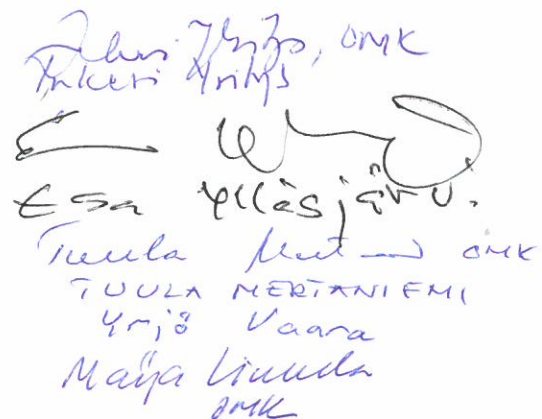 Inkeri Yritys, OMK
Inkeri Yritys
Esa Ylläsjärvi
Tuula OMK
TUULA MERTANIEMI
Yrjö Vaara
Maija Liunula
OMK